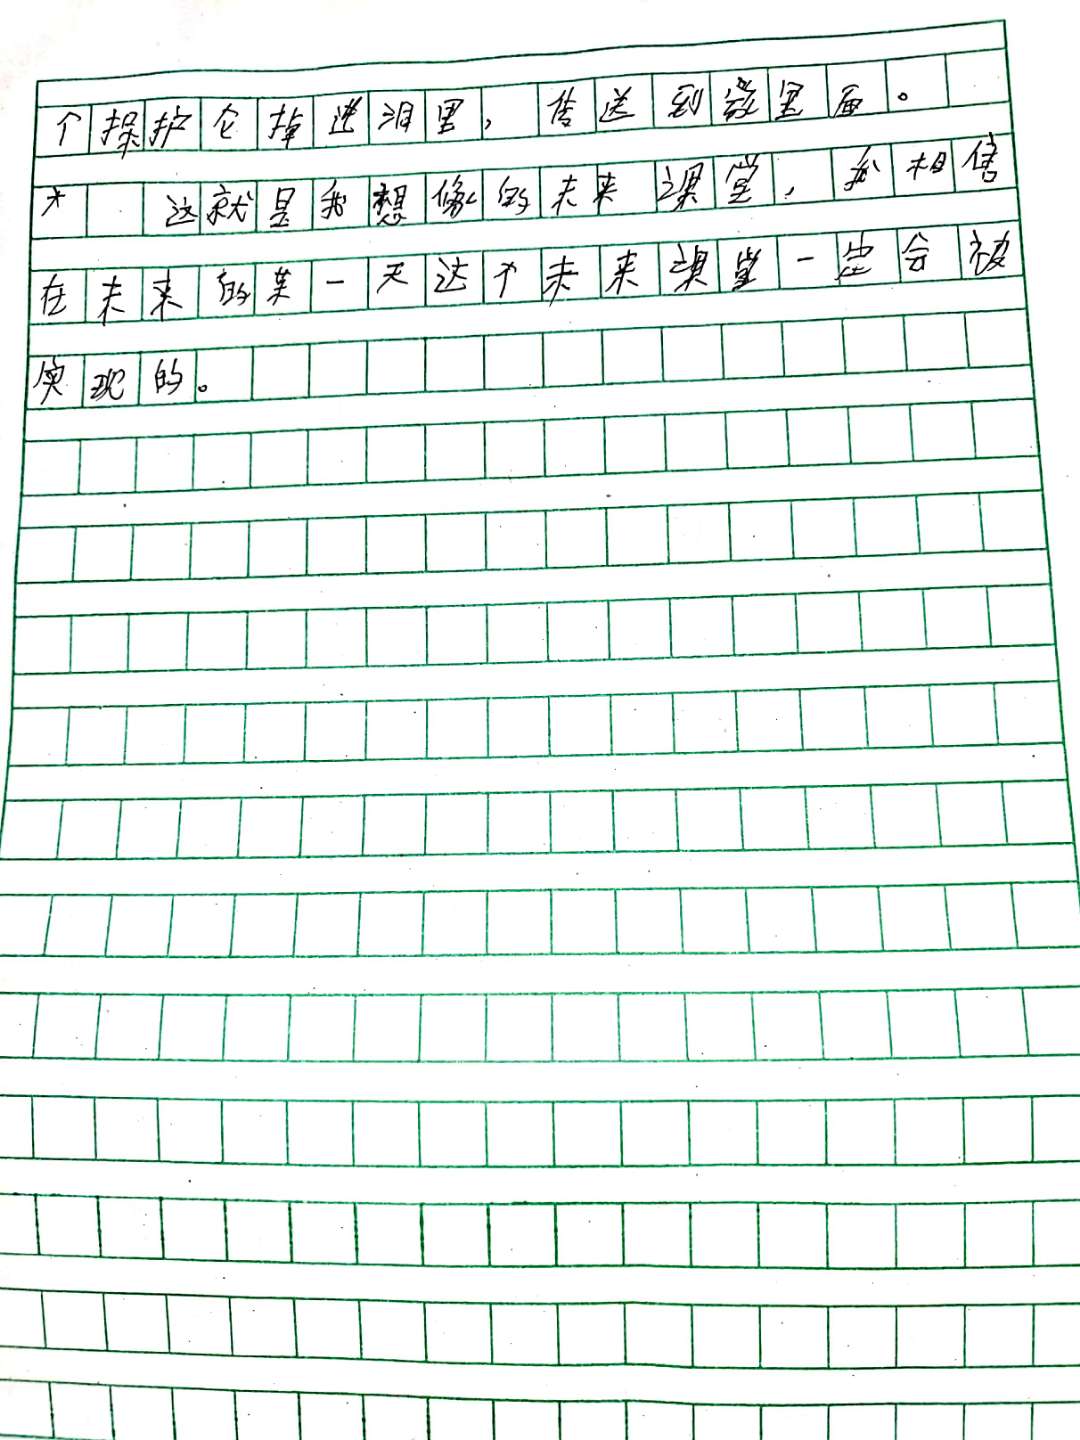 个保护仑掉进洞里，传送到教里面。
这就是我想像的未来课堂，我相信
在未来的某一天这个未来课堂一定会被
实现的。